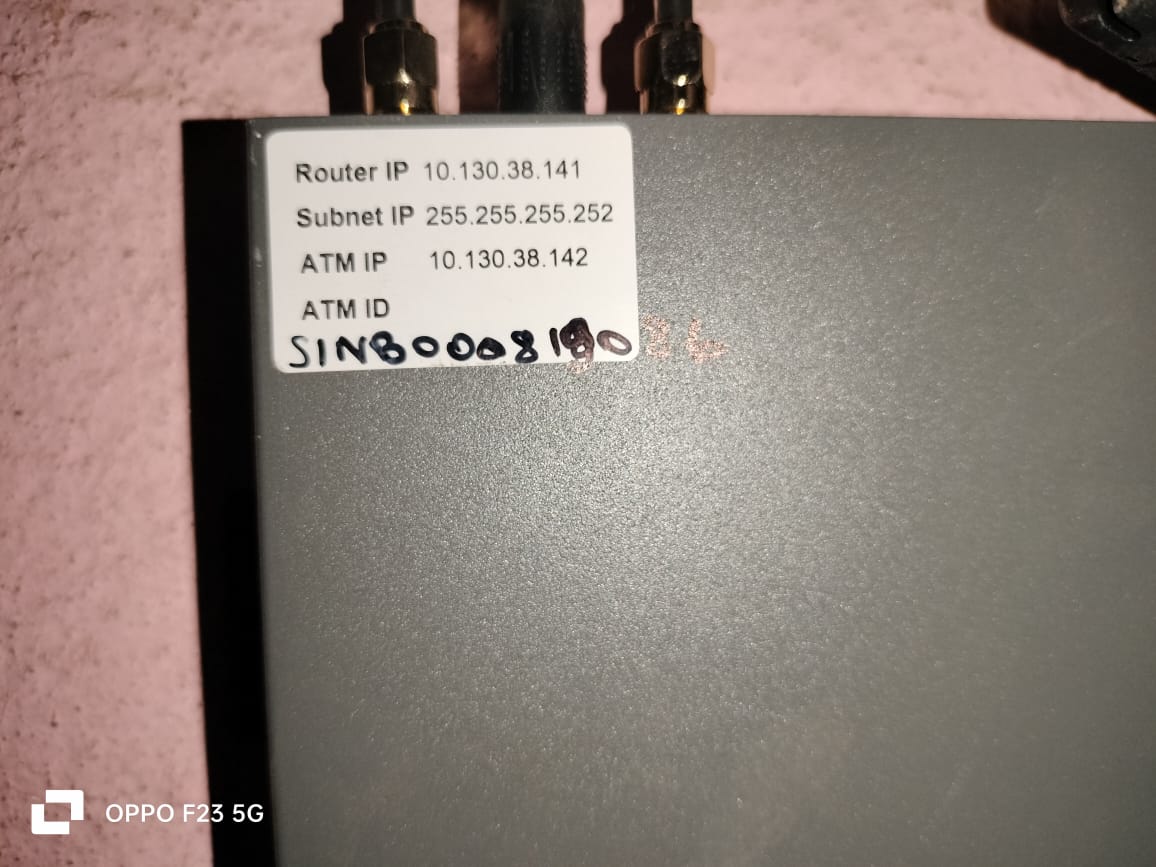 Router IP 10.130.38.141
Subnet IP 255.255.255.252
ATM IP 10.130.38.142
ATM ID
OPPO F23 5G